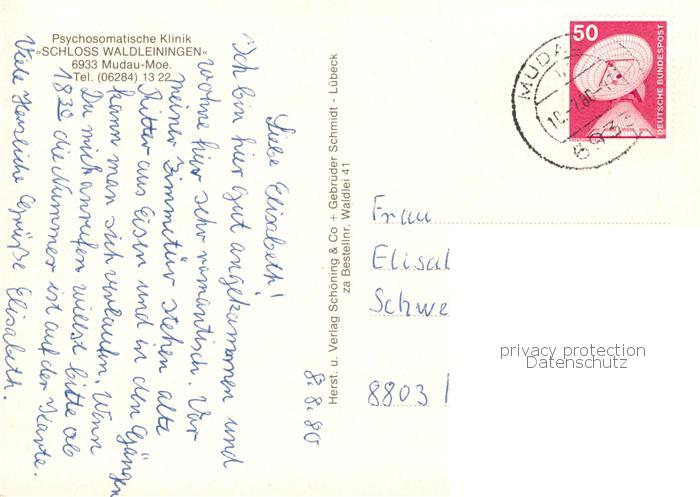 Psychosomatische Klinik
»SCHLOSS WALDLEININGEN«
6933 Mudau-Moe.
Tel. (06284) 13 22
8.8.80
Liebe Elisabeth!
Ich bin hier gut angekommen und
wohne hier sehr romantisch. Vor
meiner Zimmertür stehen alte
Ritter aus Eisen und in den Gängen
kann man sich verlaufen. Wenn
Du mich anrufen willst bitte ab
18 30 die Nummer ist auf der Karte.
Viele Herzliche Grüße Elisabeth.
Herst. u. Verlag Schöning & Co + Gebrüder Schmidt - Lübeck
za Bestellnr. Waldlei 41
50
DEUTSCHE BUNDESPOST
MUDAU
6933
Frau
Elisa
Schwe
8803
privacy protection
Datenschutz